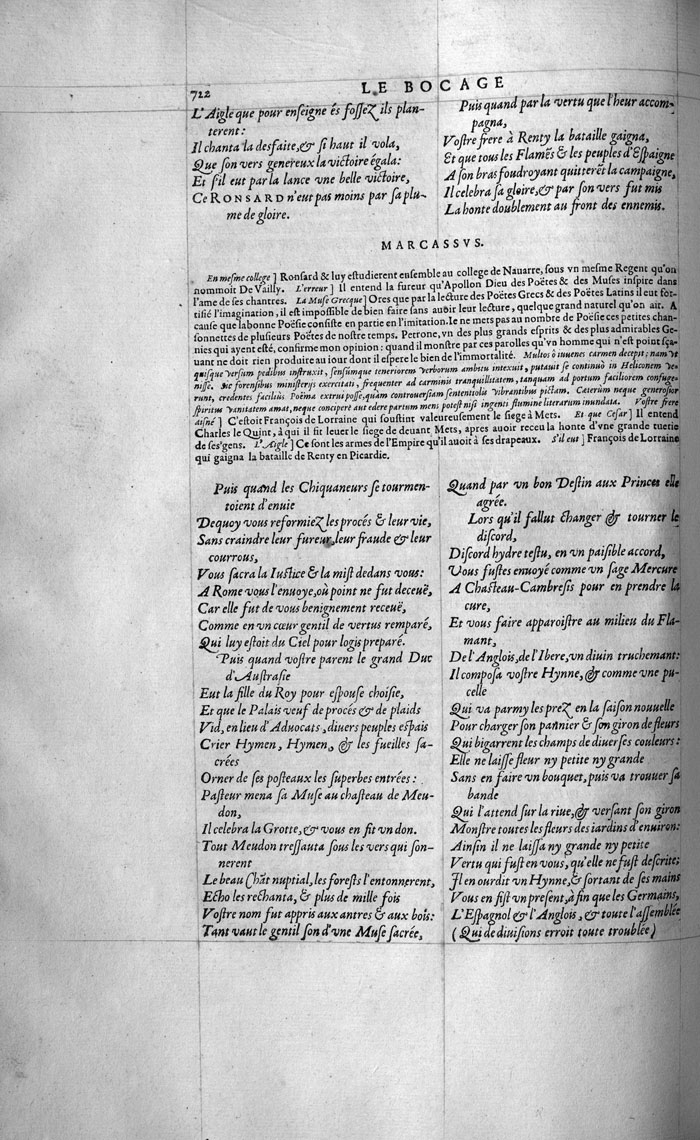 722
LE BOCAGE
L'Aigle que pour enseigne és fossez ils plan-
terent:
Il chanta la desfaite, & si haut il vola,
Que son vers genereux la victoire égala:
Et s'il eut par la lance vne belle victoire,
Ce RONSARD n'eut pas moins par sa plu-
me de gloire.
Puis quand par la vertu que l'heur accom-
pagna,
Vostre frere à Renty la bataille gaigna,
Et que tous les Flamẽs & les peuples d'Espaigne
A son bras foudroyant quitterẽt la campaigne,
Il celebra sa gloire, & par son vers fut mis
La honte doublement au front des ennemis.
MARCASSVS.
En mesme college ] Ronsard & luy estudierent ensemble au college de Nauarre, sous vn mesme Regent qu'on
nommoit De Vailly. L'erreur ] Il entend la fureur qu'Apollon Dieu des Poëtes & des Muses inspire dans
l'ame de ses chantres. La Muse Grecque ] Ores que par la lecture des Poëtes Grecs & des Poëtes Latins il eut for-
tifié l'imagination, il est impossible de bien faire sans auoir leur lecture, quelque grand naturel qu'on ait. A
cause que la bonne Poësie consiste en partie en l'imitation. Ie ne mets pas au nombre de Poësie ces petites chan-
sonnettes de plusieurs Poëtes de nostre temps. Petrone, vn des plus grands esprits & des plus admirables Ge-
nies qui ayent esté, confirme mon opinion: quand il monstre par ces parolles qu'vn homme qui n'est point sça-
uant ne doit rien produite au iour dont il espere le bien de l'immortalité. Multos ô iuuenes carmen decepit; nam vt
quisque versum pedibus instruxit, sensúmque teneriorem verborum ambitu intexuit, putauit se continuò in Heliconem ve-
nisse. Sic forensibus ministerijs exercitati, frequenter ad carminis tranquillitatem, tanquam ad portum faciliorem confuge-
runt, credentes facilius Poëma extrui posse, quàm controuersiam sententiolis vibrantibus pictam. Cæterùm neque generosior
spiritus vanitatem amat, neque concipere aut edere partum mens potest nisi ingenti flumine literarum inundata. Vostre frere
aisné ] C'estoit François de Lorraine qui soustint valeureusement le siege à Mets. Et que Cesar ] Il entend
Charles le Quint, à qui il fit leuer le siege de deuant Mets, apres auoir receu la honte d'vne grande tuerie
de ses gens. L'Aigle ] Ce sont les armes de l'Empire qu'il auoit à ses drapeaux. S'il eut ] François de Lorraine
qui gaigna la bataille de Renty en Picardie.
Puis quand les Chiquaneurs se tourmen-
toient d'enuie
Dequoy vous reformiez les procés & leur vie,
Sans craindre leur fureur, leur fraude & leur
courrous,
Vous sacra la Iustice & la mist dedans vous:
A Rome vous l'enuoye, où point ne fut deceuë,
Car elle fut de vous benignement receuë,
Comme en vn cœur gentil de vertus remparé,
Qui luy estoit du Ciel pour logis preparé.
Puis quand vostre parent le grand Duc
d'Austrasie
Eut la fille du Roy pour espouse choisie,
Et que le Palais veuf de procés & de plaids
Vid, en lieu d'Aduocats, diuers peuples espais
Crier Hymen, Hymen, & les fueilles sa-
crées
Orner de ses posteaux les superbes entrées:
Pasteur mena sa Muse au chasteau de Meu-
don,
Il celebra la Grotte, & vous en fit vn don.
Tout Meudon tressauta sous les vers qui son-
nerent
Le beau Chãt nuptial, les forests l'entonnerent,
Echo les rechanta, & plus de mille fois
Vostre nom fut appris aux antres & aux bois:
Tant vaut le gentil son d'vne Muse sacrée,
Quand par vn bon Destin aux Princes elle
agrée.
Lors qu'il fallut changer & tourner le
discord,
Discord hydre testu, en vn paisible accord,
Vous fustes enuoyé comme vn sage Mercure
A Chasteau-Cambresis pour en prendre la
cure,
Et vous faire apparoistre au milieu du Fla-
mant,
De l'Anglois, de l'Ibere, vn diuin truchemant:
Il composa vostre Hynne, & comme vne pu-
celle
Qui va parmy les prez en la saison nouuelle
Pour charger son pannier & son giron de fleurs
Qui bigarrent les champs de diuerses couleurs:
Elle ne laisse fleur ny petite ny grande
Sans en faire vn bouquet, puis va trouuer sa
bande
Qui l'attend sur la riue, & versant son giron
Monstre toutes les fleurs des iardins d'enuiron:
Ainsin il ne laissa ny grande ny petite
Vertu qui fust en vous, qu'elle ne fust descrite;
Il en ourdit vn Hynne, & sortant de ses mains
Vous en fist vn present, à fin que les Germains,
L'Espagnol & l'Anglois, & toute l'assemblée
(Qui de diuisions erroit toute troublée)